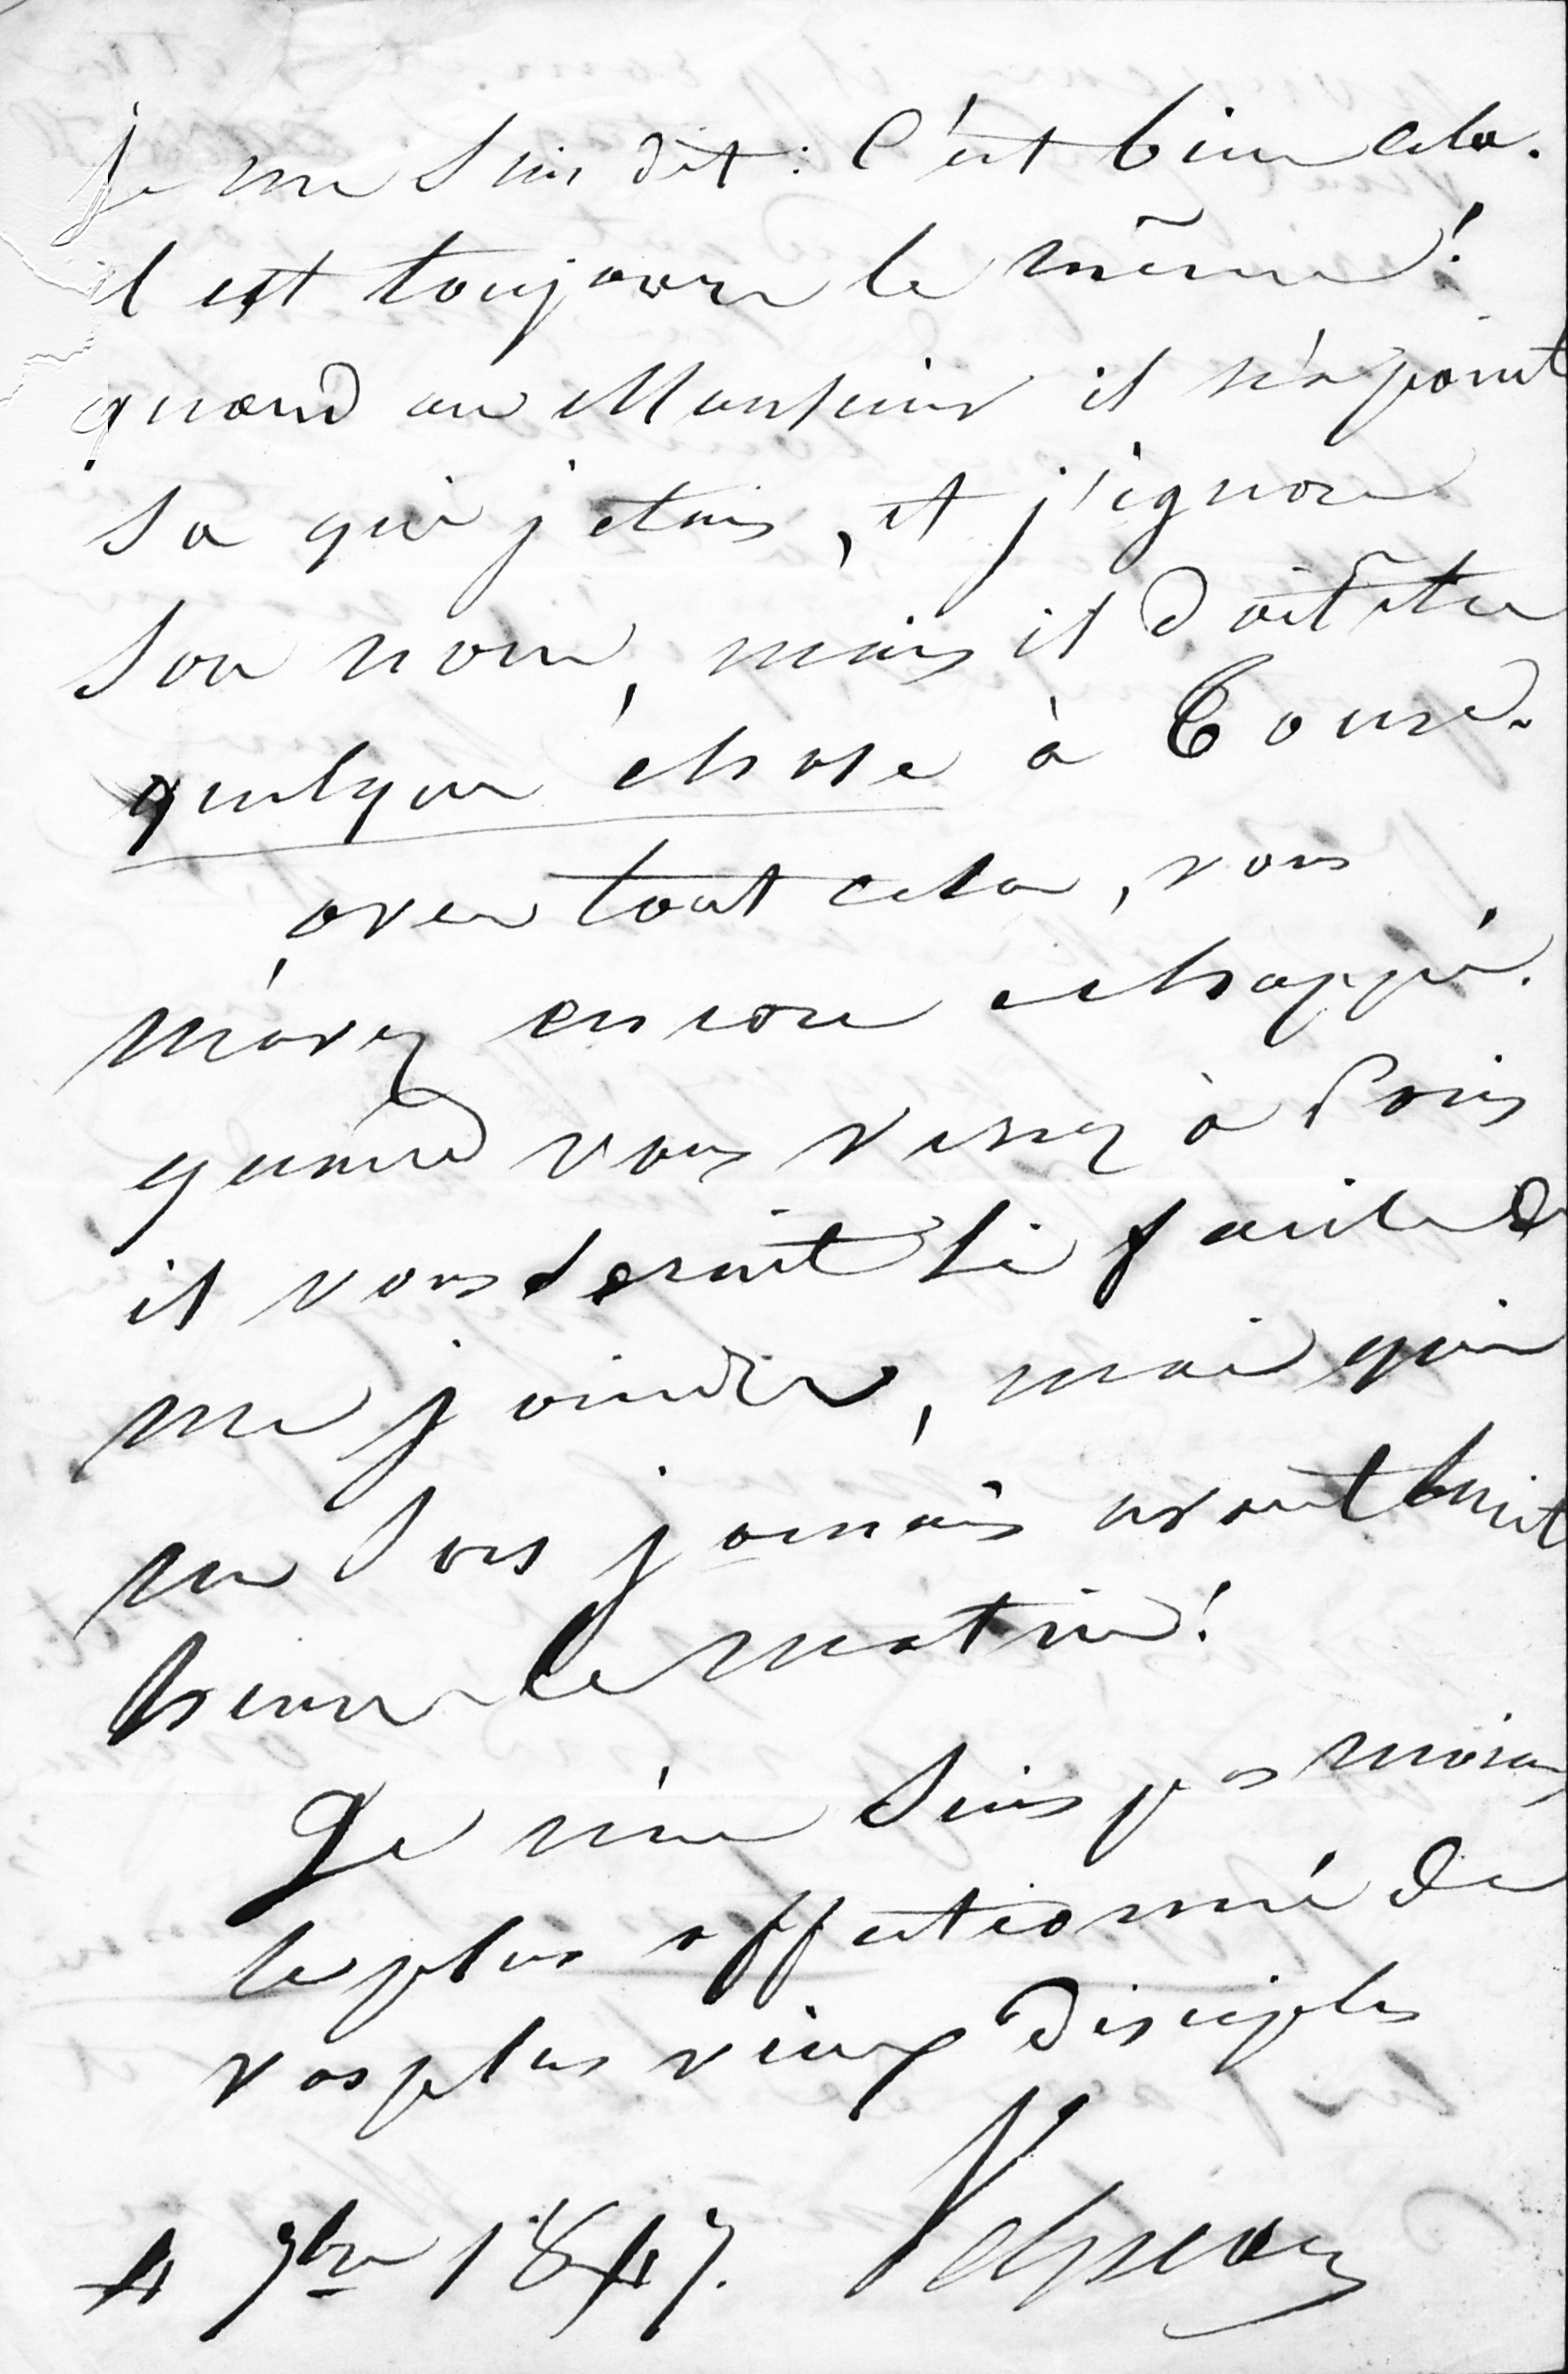 je me suis dit : C'est bien cela.
il est toujours le même !
quand au Monsieur il n'a point
su qui j'etais, et j'ignore
son nom, mais il doit être
quelque chose à Tours.
avec tout cela, vous
m'avez encore echappé.
quand vous venez à Paris
il vous serait si facile de
me joindre, moi qui
ne sors jamais avant huit
heures le matin !
Je n'en suis pas moins
le plus affectionné de
vos plus vieux disciples
4 9bre 1847.